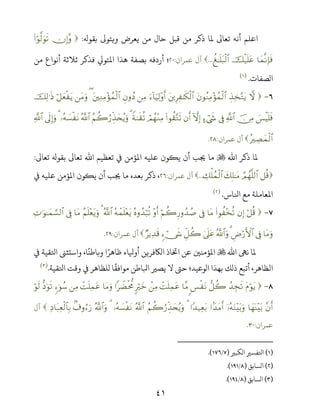 اعلم أنه تعالى لما ذكر من قبل حال من يعرض ويتولى بقوله: ﴿ وَّإِن تَوَلَّوْا۟
فَإِنَّمَا عَلَيْكَ ٱلْبَلَـٰغُ...﴾ آل عمران:٢٠؛ أردفه بصفة هذا المتولي فذكر ثلاثة أنواع من
الصفات.(١)
٦- ﴿ لَّا يَتَّخِذِ ٱلْمُؤْمِنُونَ ٱلْكَـٰفِرِينَ أَوْلِيَآءَ مِن دُونِ ٱلْمُؤْمِنِينَ ۖ وَمَن يَفْعَلْ ذَٰلِكَ
فَلَيْسَ مِنَ ٱللَّهِ فِى شَىْءٍ إِلَّآ أَن تَتَّقُوا۟ مِنْهُمْ تُقَىٰةً ۗ وَيُحَذِّرُكُمُ ٱللَّهُ نَفْسَهُۥ ۗ وَإِلَى ٱللَّهِ
ٱلْمَصِيرُ ﴾ آل عمران:٢٨.
لما ذكر الله ما يجب أن يكون عليه المؤمن في تعظيم الله تعالى بقوله تعالى:
﴿قُلِ ٱللَّهُمَّ مَـٰلِكَ ٱلْمُلْكِ...﴾ آل عمران:٢٦، ذكر بعده ما يجب أن يكون المؤمن عليه في
المعاملة مع الناس.(٢)
٧- ﴿ قُلْ إِن تُخْفُوا۟ مَا فِى صُدُورِكُمْ أَوْ تُبْدُوهُ يَعْلَمْهُ ٱللَّهُ ۗ وَيَعْلَمُ مَا فِى ٱلسَّمَـٰوَٰتِ
وَمَا فِى ٱلْأَرْضِ ۗ وَٱللَّهُ عَلَىٰ كُلِّ شَىْءٍ قَدِيرٌ ﴾ آل عمران:٢٩.
لما نهى الله المؤمنين عن اتخاذ الكافرين أولياء ظاهرًا وباطنًا، واستثنى التقية في
الظاهر، أتبع ذلك بهذا الوعيد؛ حتى لا يصير الباطن موافقًا للظاهر في وقت التقية.(٣)
٨- ﴿ يَوْمَ تَجِدُ كُلُّ نَفْسٍ مَّا عَمِلَتْ مِنْ خَيْرٍ مُّحْضَرًا وَمَا عَمِلَتْ مِن سُوٓءٍ تَوَدُّ لَوْ
أَنَّ بَيْنَهَا وَبَيْنَهُۥٓ أَمَدًۢا بَعِيدًا ۗ وَيُحَذِّرُكُمُ ٱللَّهُ نَفْسَهُۥ ۗ وَٱللَّهُ رَءُوفٌۢ بِٱلْعِبَادِ ﴾ آل
عمران:٣٠.
(١) التفسير الكبير (١٧٦/٧).
(٢) السابق (١٩١/٨).
(٣) السابق (١٩٤/٨).
٤١